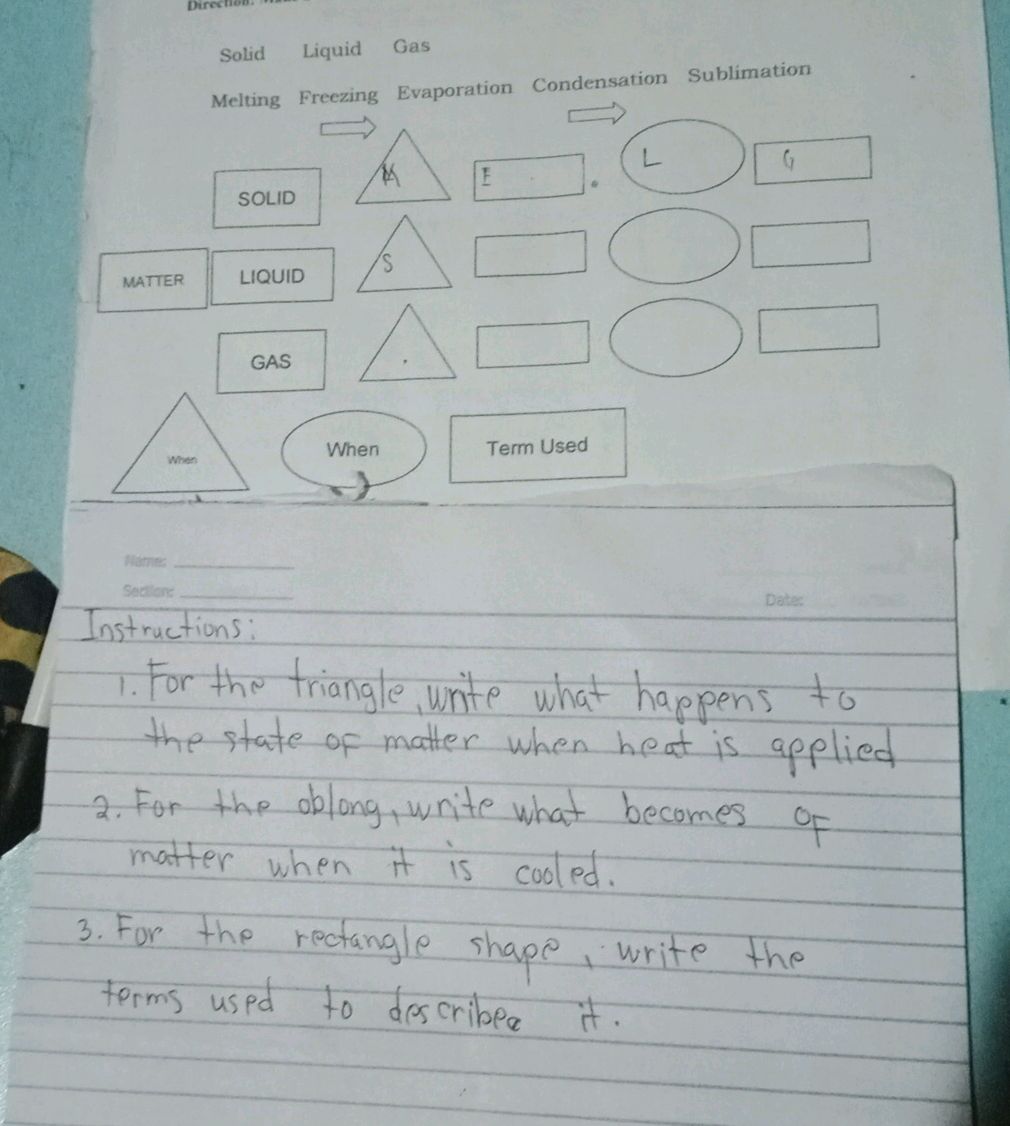 Direction:
Solid Liquid Gas
Melting Freezing Evaporation Condensation Sublimation
SOLID M E L G
MATTER LIQUID S
GAS
When When Term Used
Name:
Section:
Date:
Instructions:
1. For the triangle, write what happens to
the state of matter when heat is applied
2. For the oblong, write what becomes of
matter when it is cooled.
3. For the rectangle shape, write the
terms used to describe it.